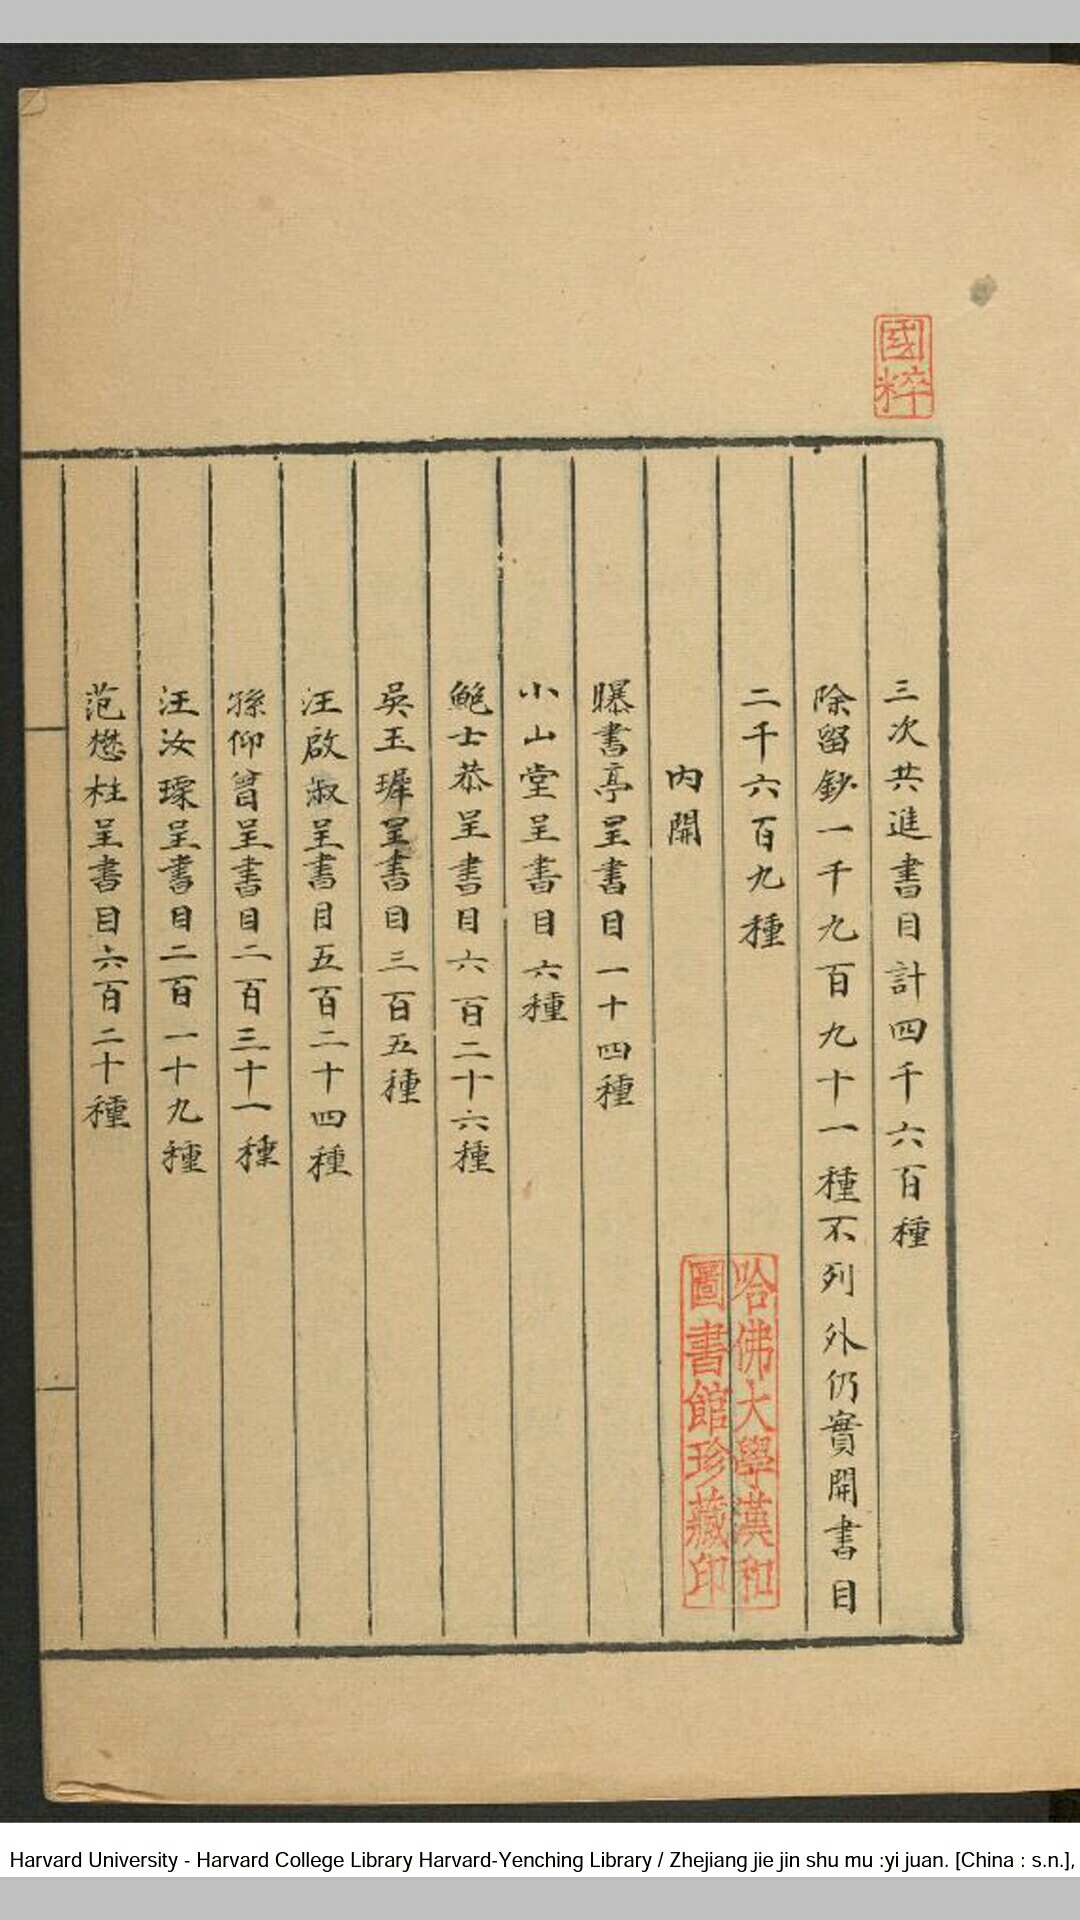 國粹
三次共進書目計四千六百種
除留鈔一千九百九十一種不列外仍實開書目
二千六百九種
內開
曝書亭呈書目一十四種
小山堂呈書目六種
鮑士恭呈書目六百二十六種
吳玉墀呈書目三百五種
汪啟淑呈書目五百二十四種
孫仰曾呈書目二百三十一種
汪汝瑮呈書目二百一十九種
范懋柱呈書目六百二十種
哈佛大學漢和
圖書館珍藏印
Harvard University - Harvard College Library Harvard-Yenching Library / Zhejiang jie jin shu mu :yi juan. [China : s.n.],